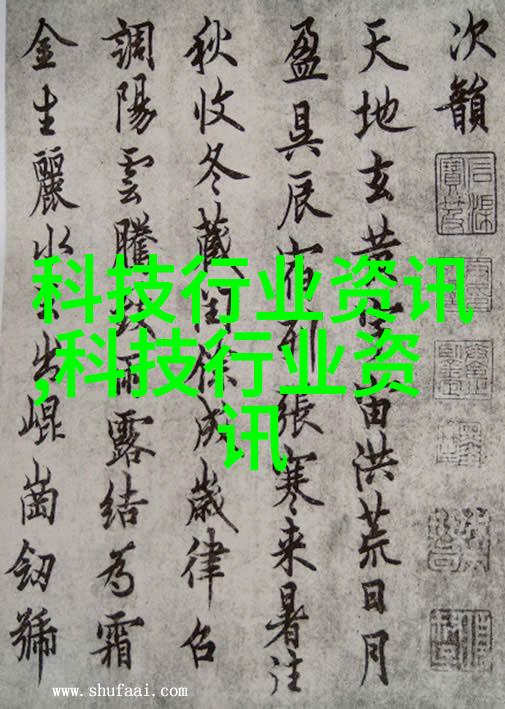 次韻
天地玄黃宇宙洪荒日月
盈昃辰宿列張寒来暑往
秋收冬藏閏餘成歲律召
調陽雲騰致雨露結為霜
金生麗水玉出崐崗劒號
科技行业资讯
,科技行业资
讯
www.shufaai.com